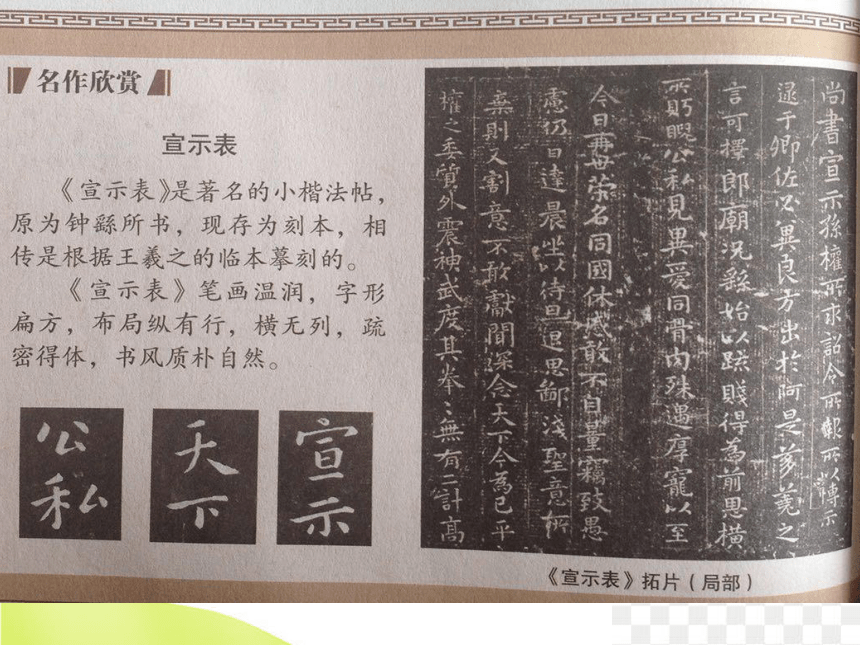 名作欣赏
宣示表
《宣示表》是著名的小楷法帖，
原为钟繇所书，现存为刻本，相
传是根据王羲之的临本摹刻的。
《宣示表》笔画温润，字形
扁方，布局纵有行，横无列，疏
密得体，书风质朴自然。
公私
天下
宣示
尚書宣示孫權所求詔令所報所以博示
逮于卿佐必冀良方出於阿是芻蕘之
言可擇郎廟況繇始以疏賤得為前恩橫
所眄睨公私見異愛同骨肉殊遇厚寵以至
今日再世榮名同國休慼敢不自量竊致愚
慮仍日達晨坐以待旦退思鄙淺聖意所
棄則又割意不敢獻聞深念天下今為已平
權之委質外震神武度其拳〻無有二計高
《宣示表》拓片（局部）